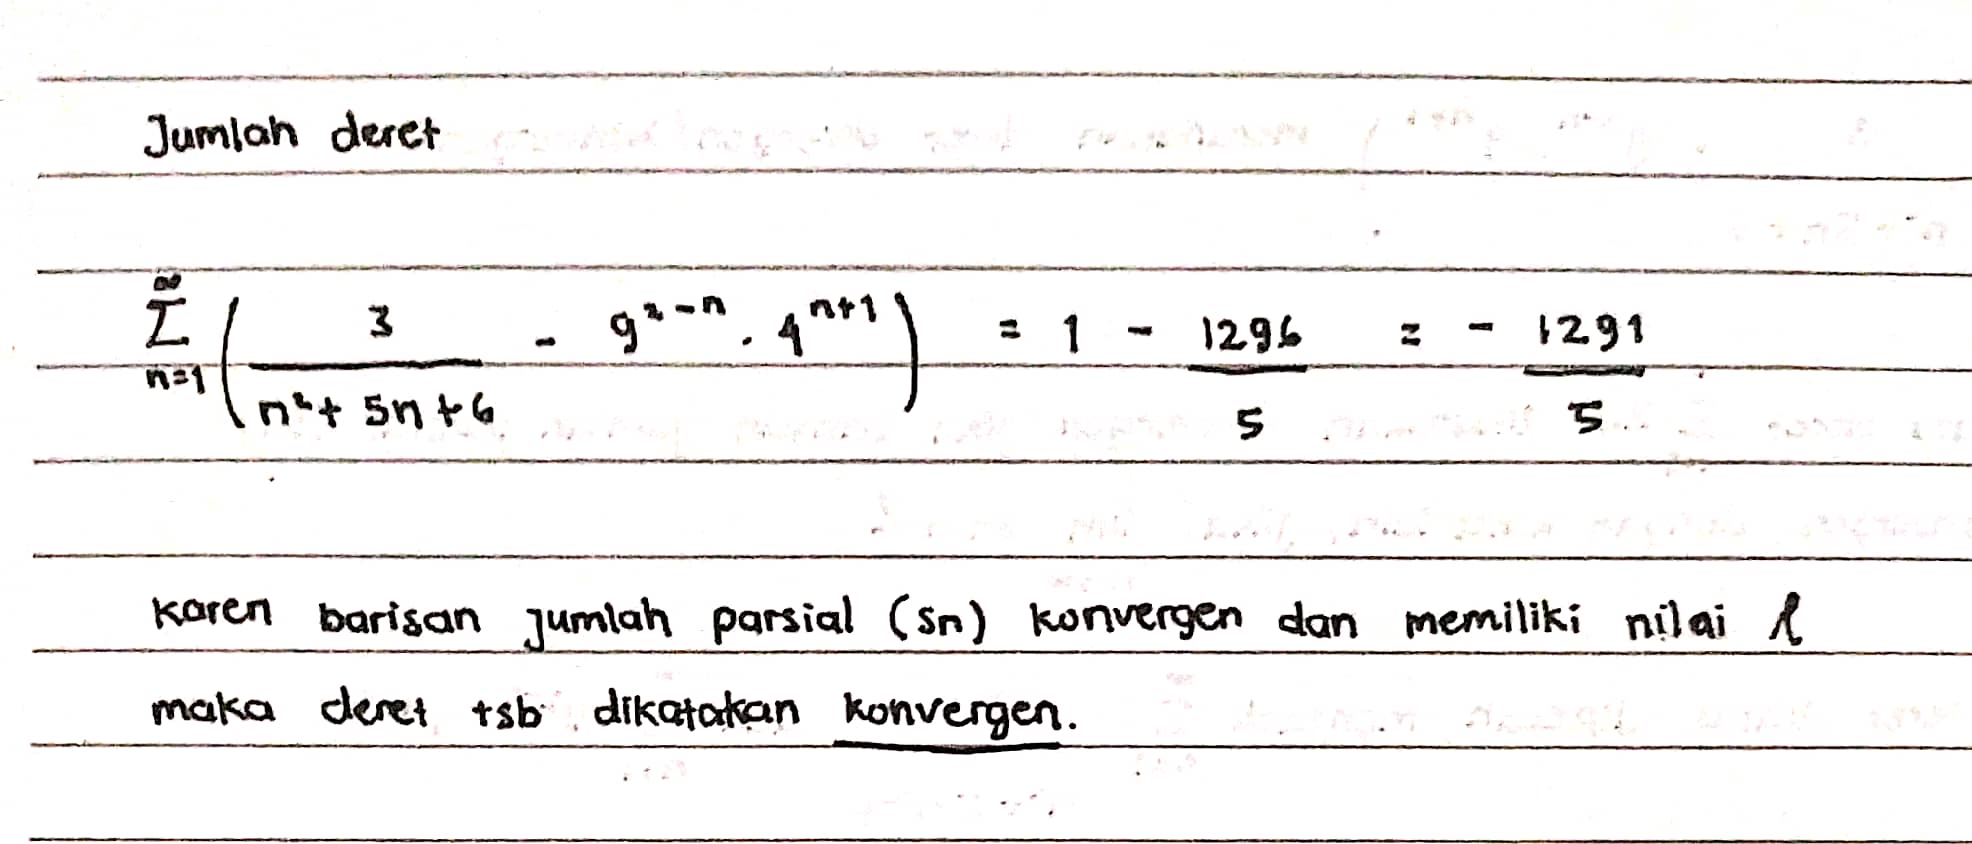 Jumlah deret
∞
Σ ( 3 / (n² + 5n + 6) - 9²⁻ⁿ . 4ⁿ⁺¹ ) = 1 - 1296/5 = - 1291/5
n=1
karen barisan jumlah parsial (sn) konvergen dan memiliki nilai l
maka deret tsb dikatakan konvergen.